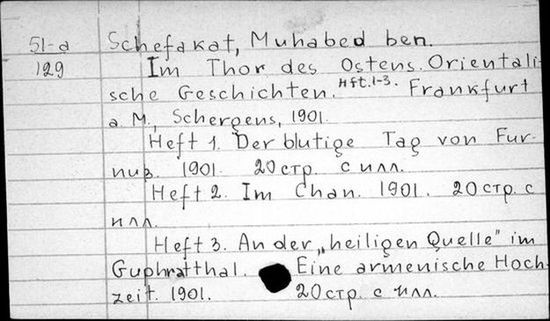 51-a Schefakat, Muhabed ben.
129 Im Thor des Ostens. Orientali-
sche Geschichten. Hft.1-3. Frankfurt
a M., Schergens, 1901.
Heft 1. Der blutige Tag von Fur-
nuß. 1901. 20 стр. с илл.
Heft 2. Im Chan. 1901. 20 стр. с
илл.
Heft 3. An der „heiligen Quelle" im
Guphratthal. Eine armenische Hoch-
zeit. 1901. 20 стр. с илл.